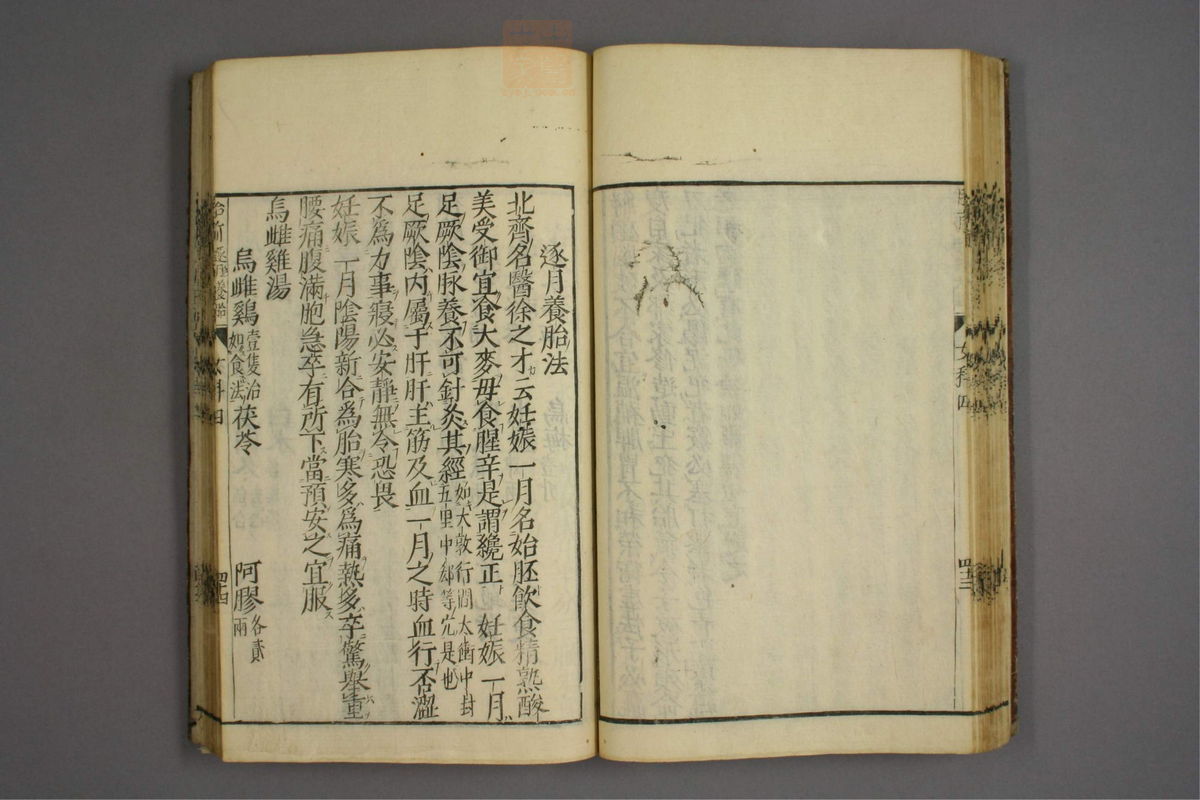 四十三
逐月養胎法
北齊名醫徐之才云妊娠一月名始胚飲食精熟酸
美受御宜食大麥毋食腥辛是謂纔正 妊娠一月
足厥陰脉養不可針灸其經如大敦行間太衝中封五里中郄等穴是也
足厥陰內屬于肝肝主筋及血一月之時血行否澀
不為力事寢必安靜無令恐畏
妊娠一月陰陽新合為胎寒多為痛熱多卒驚舉重
腰痛腹滿胞急卒有所下當預安之宜服
烏雌雞湯
烏雌鷄壹隻治如食法 茯苓 阿膠各貳兩
女科四
四十四